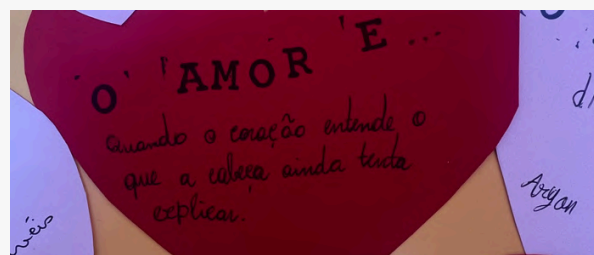 O AMOR E...
Quando o coração entende o
que a cabeça ainda tenta
explicar.
Aryan